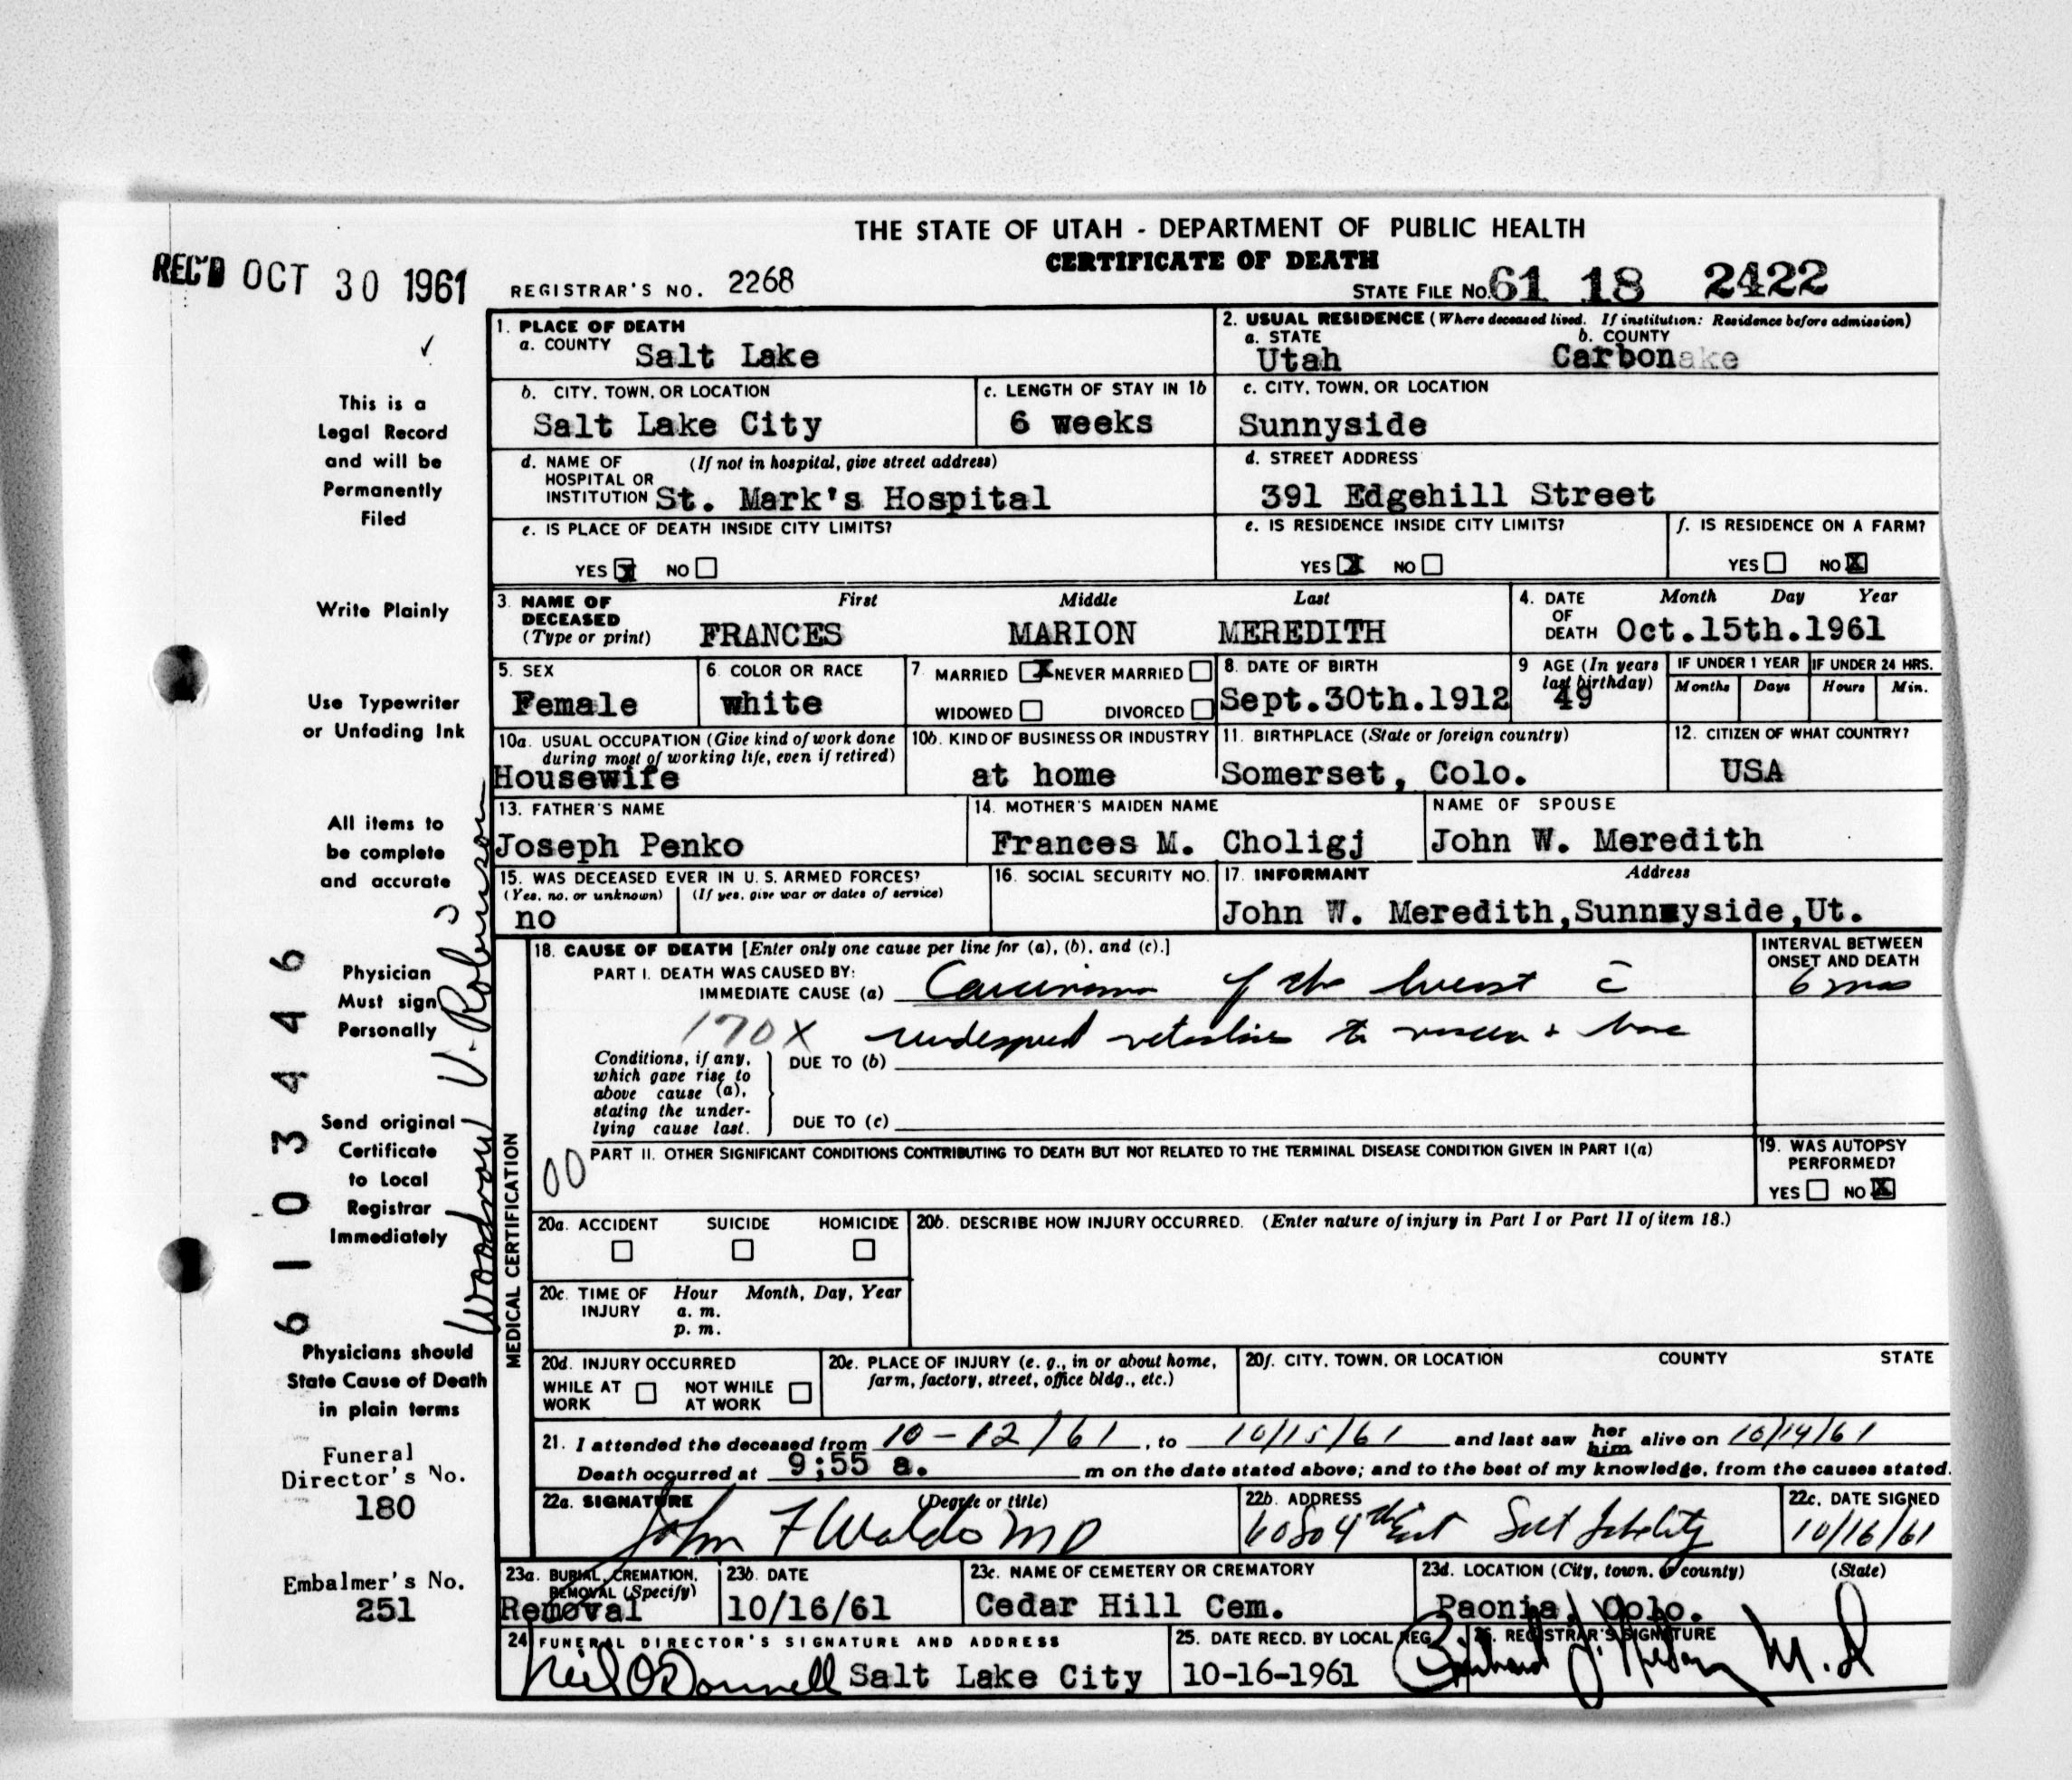 THE STATE OF UTAH - DEPARTMENT OF PUBLIC HEALTH
CERTIFICATE OF DEATH
REC'D OCT 30 1961
REGISTRAR'S NO. 2268
STATE FILE NO. 61 18 2422
1. PLACE OF DEATH
a. COUNTY Salt Lake
2. USUAL RESIDENCE (Where deceased lived. If institution: Residence before admission)
a. STATE Utah b. COUNTY Carbon
b. CITY, TOWN, OR LOCATION Salt Lake City
c. LENGTH OF STAY IN 1b 6 weeks
c. CITY, TOWN, OR LOCATION Sunnyside
d. NAME OF HOSPITAL OR INSTITUTION (If not in hospital, give street address) St. Mark's Hospital
d. STREET ADDRESS 391 Edgehill Street
e. IS PLACE OF DEATH INSIDE CITY LIMITS? YES X NO
e. IS RESIDENCE INSIDE CITY LIMITS? YES X NO
f. IS RESIDENCE ON A FARM? YES NO X
3. NAME OF DECEASED (Type or print) First Middle Last
FRANCES MARION MEREDITH
4. DATE OF DEATH Month Day Year
Oct.15th.1961
5. SEX Female
6. COLOR OR RACE white
7. MARRIED X NEVER MARRIED
WIDOWED DIVORCED
8. DATE OF BIRTH Sept.30th.1912
9 AGE (In years last birthday) 49
IF UNDER 1 YEAR Months Days
IF UNDER 24 HRS. Hours Min.
10a. USUAL OCCUPATION (Give kind of work done during most of working life, even if retired) Housewife
10b. KIND OF BUSINESS OR INDUSTRY at home
11. BIRTHPLACE (State or foreign country) Somerset, Colo.
12. CITIZEN OF WHAT COUNTRY? USA
13. FATHER'S NAME Joseph Penko
14. MOTHER'S MAIDEN NAME Frances M. Choligj
NAME OF SPOUSE John W. Meredith
15. WAS DECEASED EVER IN U. S. ARMED FORCES?
(Yes, no, or unknown) (If yes, give war or dates of service)
no
16. SOCIAL SECURITY NO.
17. INFORMANT Address
John W. Meredith,Sunnyside,Ut.
18. CAUSE OF DEATH [Enter only one cause per line for (a), (b), and (c).]
INTERVAL BETWEEN ONSET AND DEATH
PART I. DEATH WAS CAUSED BY:
IMMEDIATE CAUSE (a) Carcinoma of the breast c̄ 6 mos
170X widespread metastasis to viscera + bone
Conditions, if any, which gave rise to above cause (a), stating the underlying cause last.
DUE TO (b)
DUE TO (c)
00
PART II. OTHER SIGNIFICANT CONDITIONS CONTRIBUTING TO DEATH BUT NOT RELATED TO THE TERMINAL DISEASE CONDITION GIVEN IN PART I(a)
19. WAS AUTOPSY PERFORMED?
YES NO X
MEDICAL CERTIFICATION
20a. ACCIDENT SUICIDE HOMICIDE
20b. DESCRIBE HOW INJURY OCCURRED. (Enter nature of injury in Part I or Part II of item 18.)
20c. TIME OF INJURY Hour Month, Day, Year
a. m.
p. m.
20d. INJURY OCCURRED
WHILE AT WORK NOT WHILE AT WORK
20e. PLACE OF INJURY (e. g., in or about home, farm, factory, street, office bldg., etc.)
20f. CITY, TOWN, OR LOCATION COUNTY STATE
21. I attended the deceased from 10-12/61, to 10/15/61 and last saw her him alive on 10/14/61
Death occurred at 9:55 a. m on the date stated above; and to the best of my knowledge, from the causes stated.
22a. SIGNATURE (Degree or title) John F Waldo MD
22b. ADDRESS
22c. DATE SIGNED 10/16/61
23a. BURIAL, CREMATION, REMOVAL (Specify) Removal
23b. DATE 10/16/61
23c. NAME OF CEMETERY OR CREMATORY Cedar Hill Cem.
23d. LOCATION (City, town, or county) (State) Paonia, Colo.
24 FUNERAL DIRECTOR'S SIGNATURE AND ADDRESS
Neil O'Donnell Salt Lake City
25. DATE RECD. BY LOCAL REG. 10-16-1961
26. REGISTRAR'S SIGNATURE
M.D
This is a
Legal Record
and will be
Permanently
Filed
Write Plainly
Use Typewriter
or Unfading Ink
All items to
be complete
and accurate
Physician
Must sign
Personally
Send original
Certificate
to Local
Registrar
Immediately
Physicians should
State Cause of Death
in plain terms
Funeral
Director's No.
180
Embalmer's No.
251
6103446
Woodrow V. Robinson